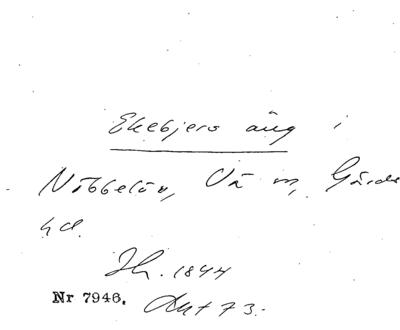 Ekebjers äng i
Nöbbelöv, Vä sn, Gärds
hd.
Jh. 1844
Nr 7946. Akt 73.